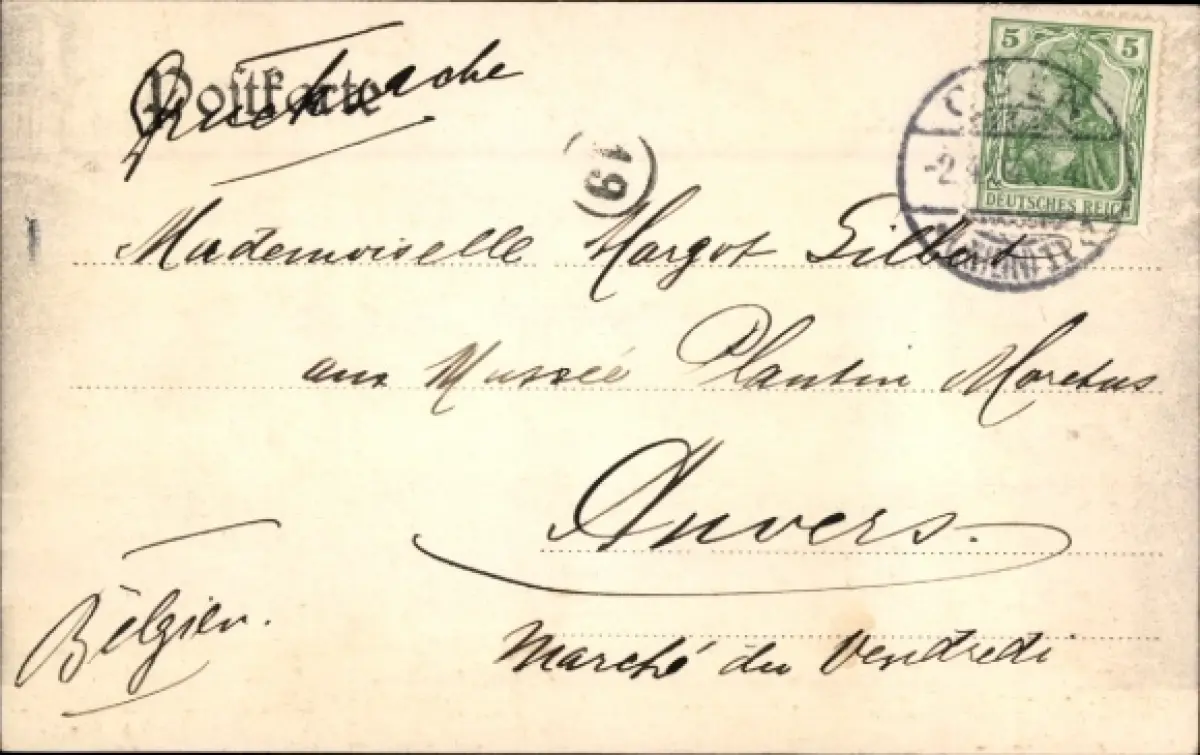 Postkarte
Drucksache
5 5
DEUTSCHES REICH
19
Mademoiselle Margot Gilbert
au Musée Plantin Moretus
Anvers.
Belgien.
Marché du Vendredi